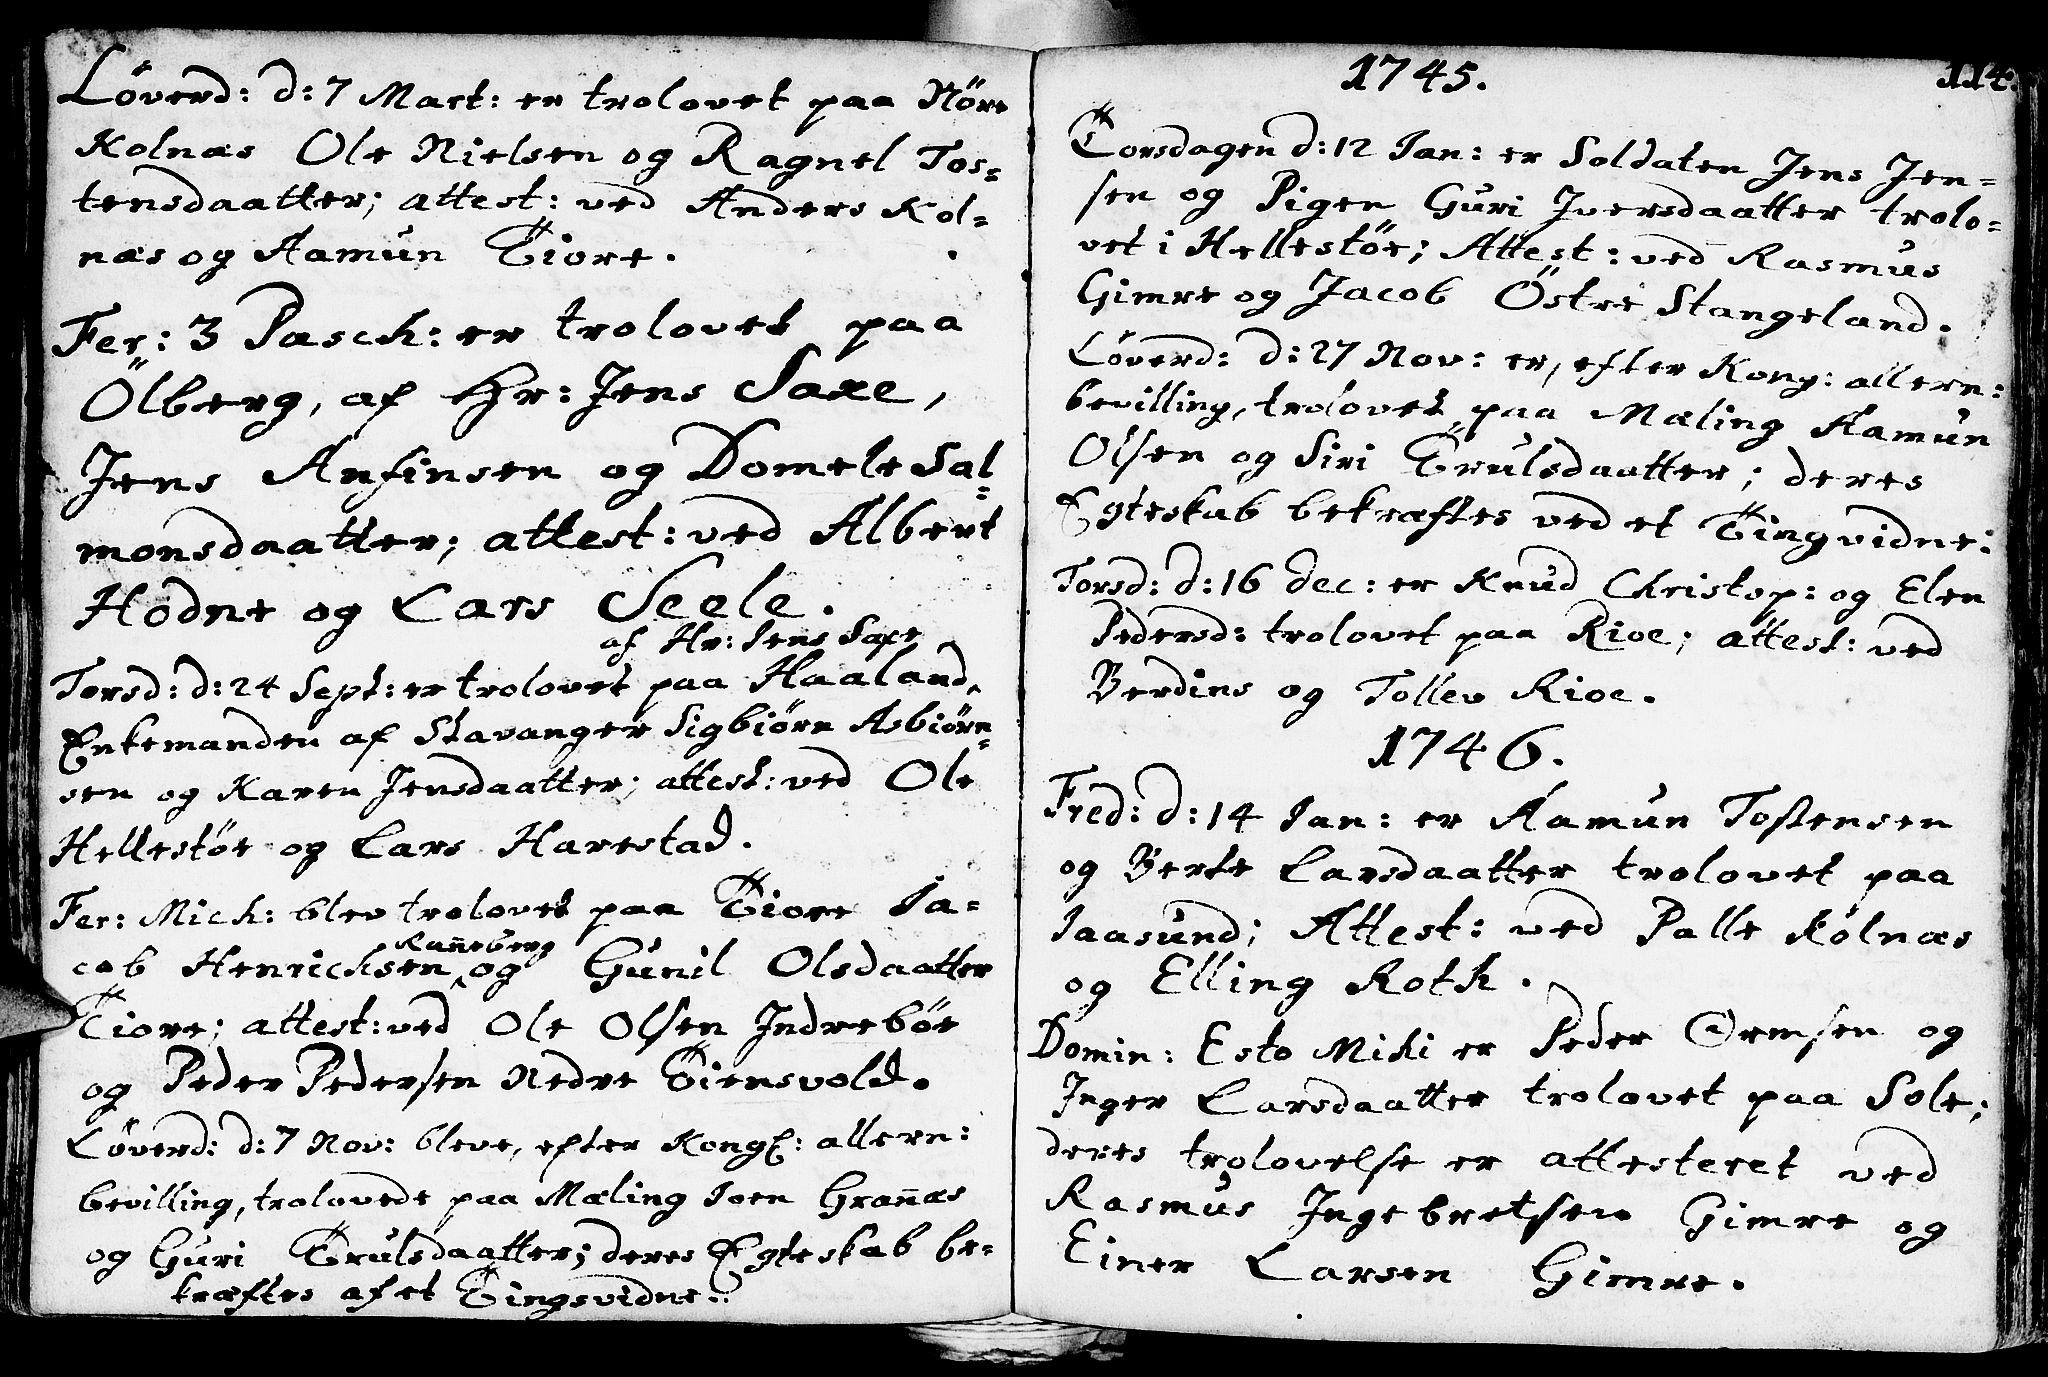 Löverd: d: 7 Mart: er trolovet paa Nöre
Kolnæs Ole Nielsen og Ragnel Tos=
tensdaatter; attest: ved Anders Kol=
næs og Aamun Tiore.
Fer: 3 Pasch: er trolovet paa
Ölberg, af Hr: Jens Saxe,
Jens Anfinsen og Domele Sal=
monsdaatter; attest: ved Albert
Hodne og Lars Seele.
af Hr: Jens Saxe
Torsd: d: 24 Sept: er trolovet paa Haaland,
Enkemanden af Stavanger Sigbiörn Asbiörn=
sen og Karen Jensdaatter; attest: ved Ole
Hellestöe og Lars Harestad.
Fer: Mich: blev trolovet paa Tiore Ja=
Ranneberg
cob Henrichsen og Gunil Olsdaatter
Tiore; attest: ved Ole Olsen Indreböe
og Peder Pedersen Nedre Tiensvold.
Löverd: d: 7 Nov: bleve, efter Kongl: allern:
bevilling, trolovede paa Mæling Joen Grannæs
og Guri Trulsdaatter; deres Egteskab be=
kræftes af et Tingsvidne.
1745.
114.
Torsdagen d: 12 Jan: er Soldaten Jens Jen=
sen og Pigen Guri Iversdaatter trolo=
vet i Hellestöe; Attest: ved Rasmus
Gimre og Jacob Östre Stangeland.
Löverd: d: 27 Nov: er, efter Kong: allern:
bevilling, trolovet paa Mæling Aamun
Olsen og Siri Trulsdaatter; deres
Egteskab bekræftes ved et Tingvidne:
Torsd: d: 16 Dec: er Knud Christop: og Elen
Pedersd: trolovet paa Rioe; attest: ved
Berdins og Tollev Rioe.
1746.
Fred: d: 14 Jan: er Aamun Tostensen
og Berte Larsdaatter trolovet paa
Jaasund; Attest: ved Palle Kolnæs
og Elling Roth.
Domin: Esto Mihi er Peder Ormsen og
Inger Larsdaatter trolovet paa Sole;
deres trolovelse er attesteret ved
Rasmus Ingebretsen Gimre og
Einer Larsen Gimre.